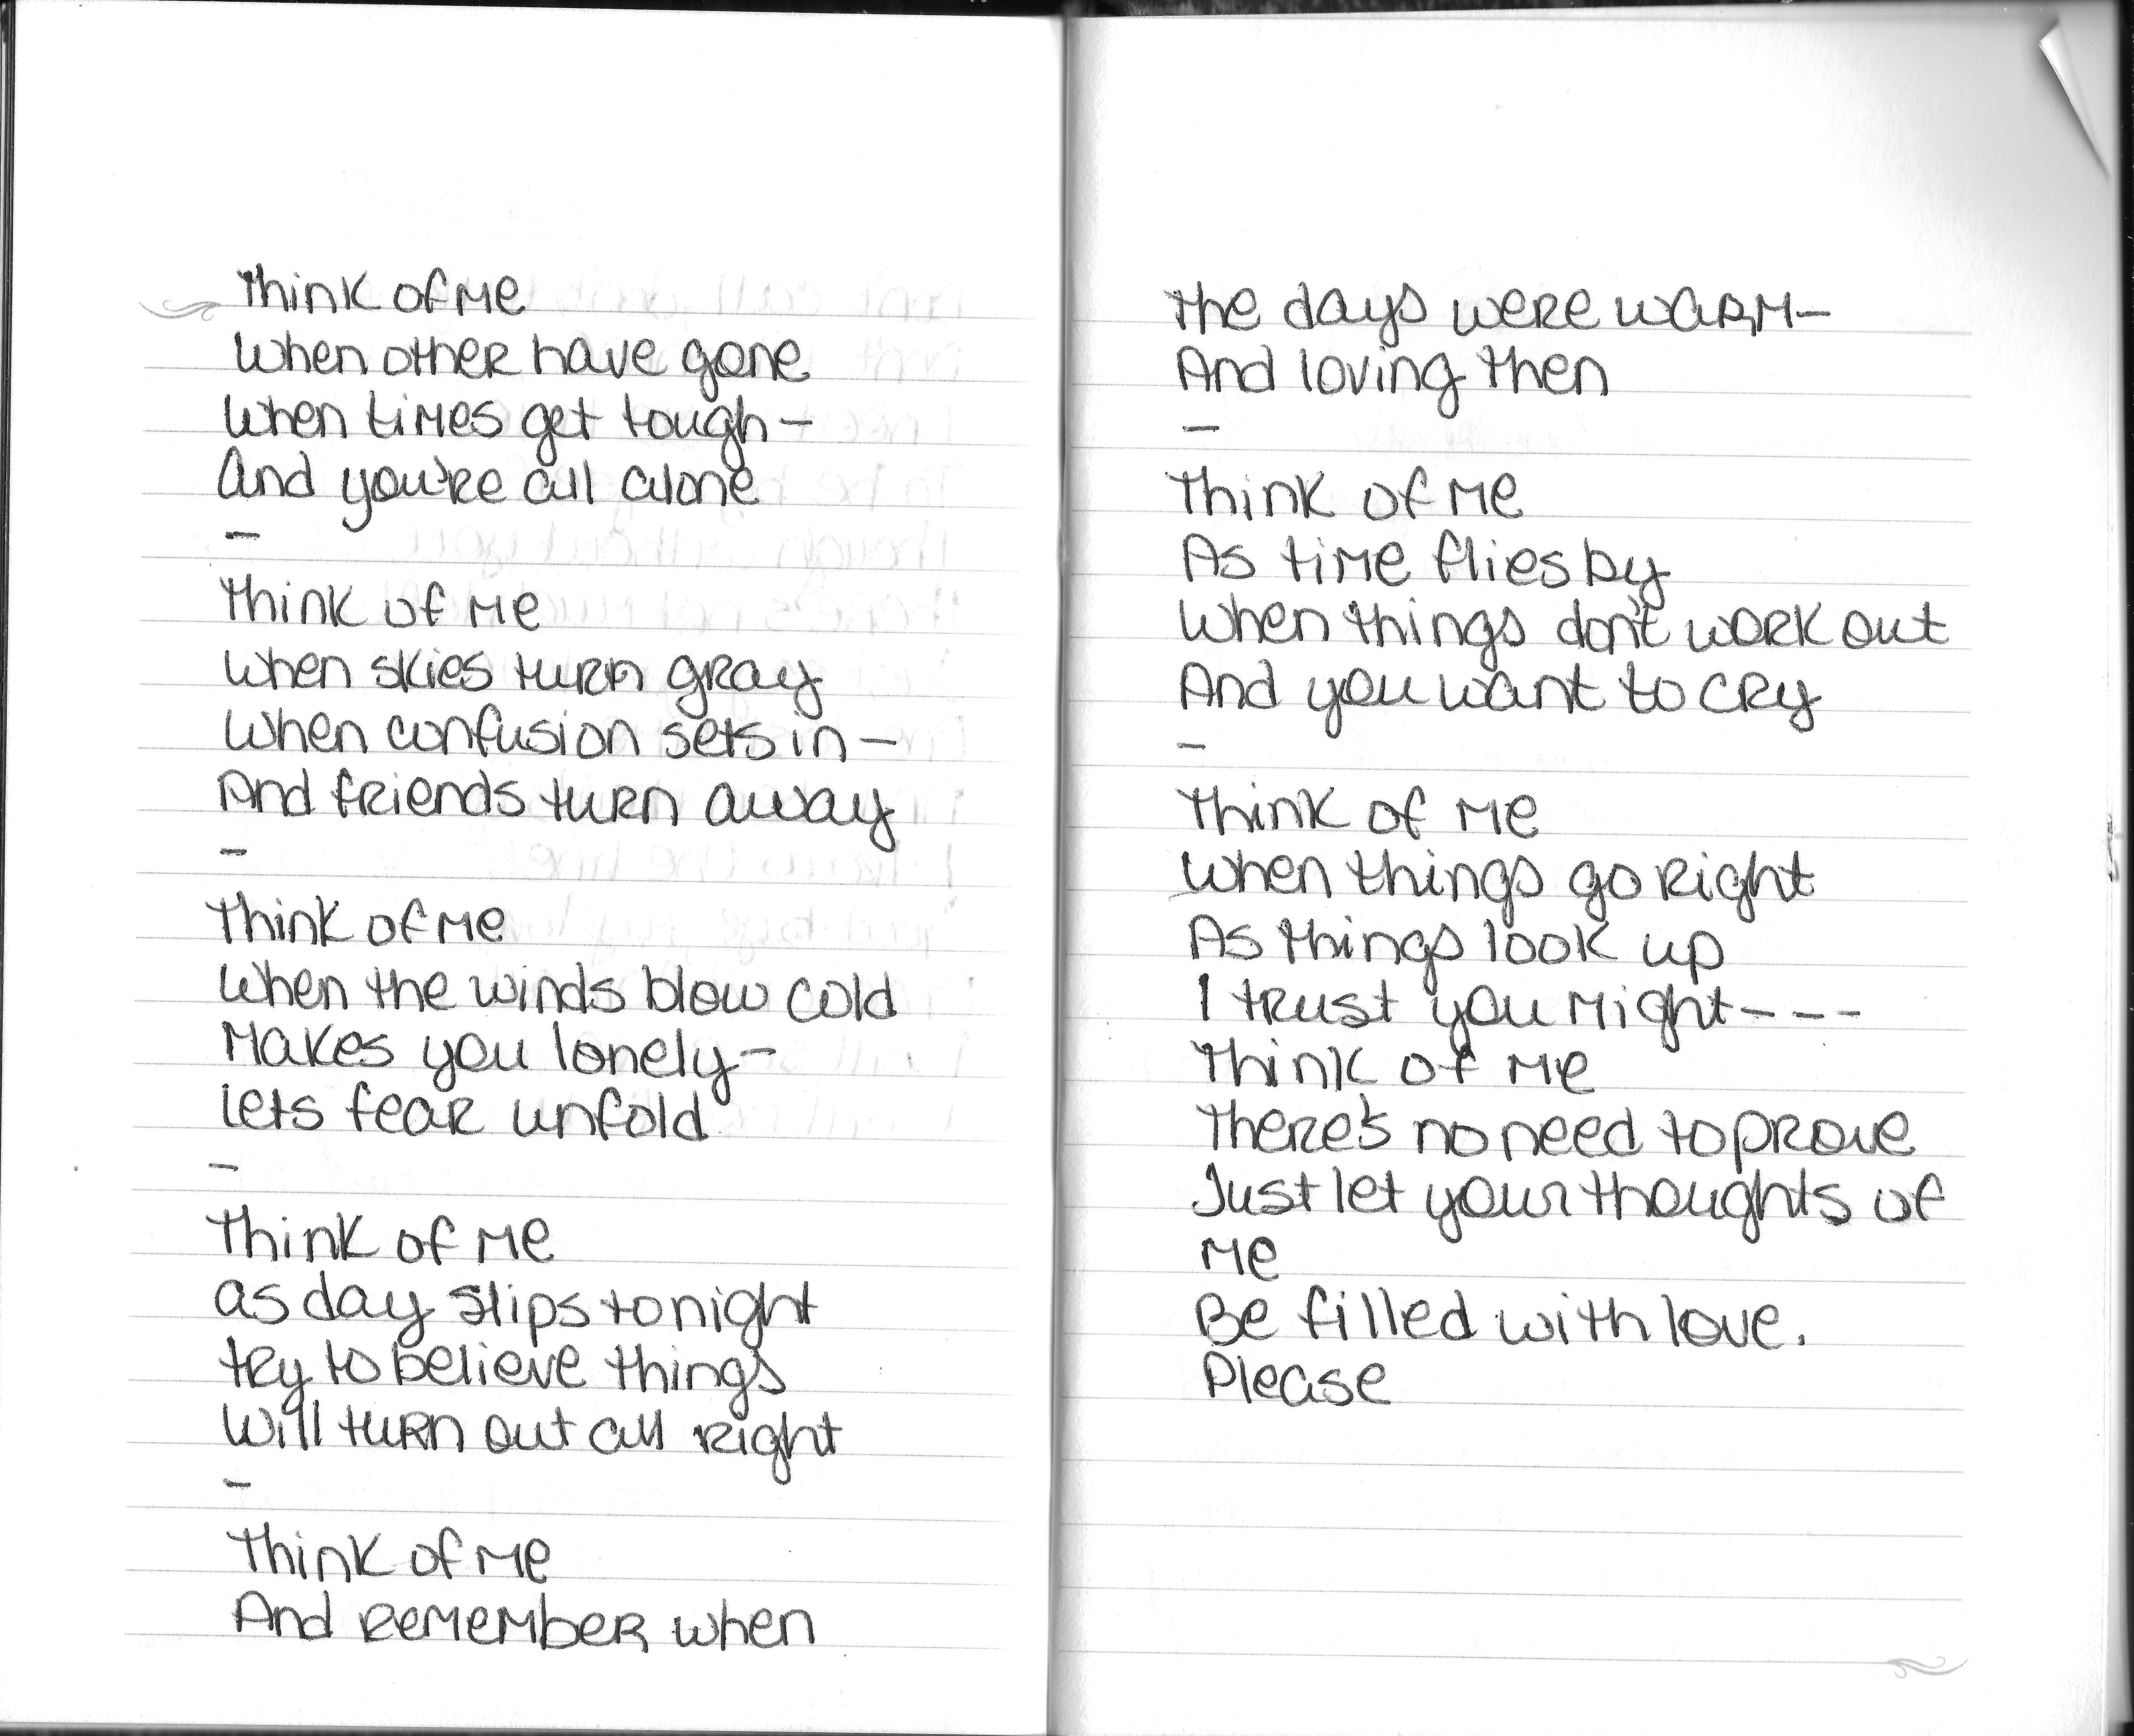 Think of me
When other have gone
When times get tough-
And you're all alone
-
Think of me
When skies turn gray
When confusion sets in-
And friends turn away
-
Think of me
When the winds blow cold
Makes you lonely-
Lets fear unfold
-
Think of me
as day slips to night
try to believe things
Will turn out all right
-
Think of me
And remember when
the days were warm-
And loving then
-
Think of me
As time flies by
When things don't work out
And you want to cry
-
Think of me
When things go right
As things look up
I trust you might----
Think of me
There's no need to prove
Just let your thoughts of
me
Be filled with love.
Please